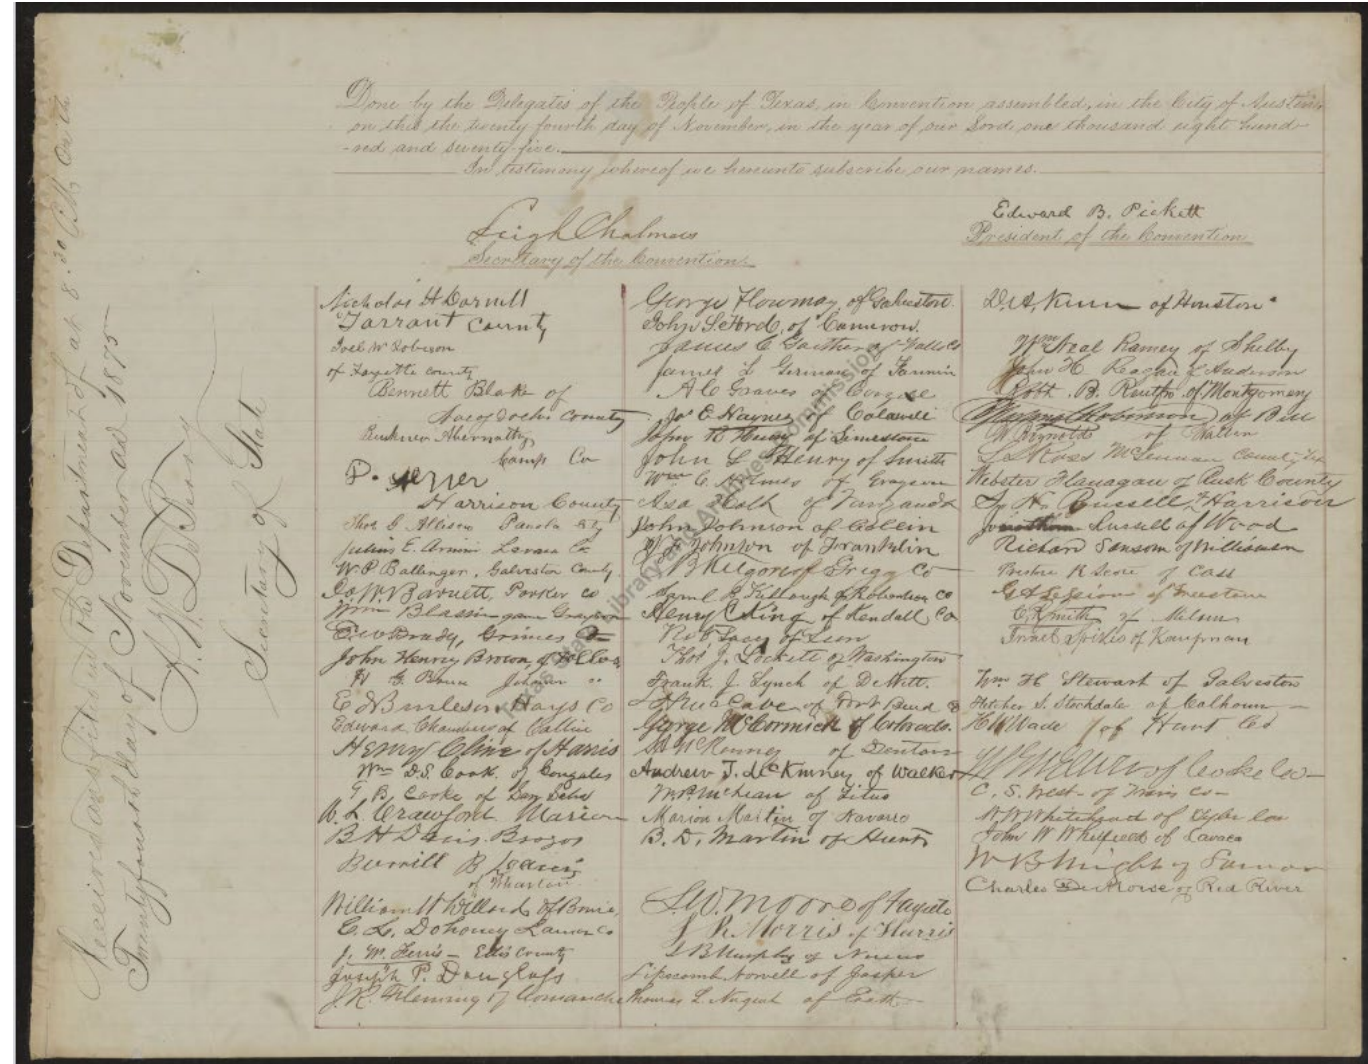 Done by the Delegates of the People of Texas, in Convention assembled, in the City of Austin,
on this the twenty fourth day of November, in the year of our Lord, one thousand eight hund-
-red and seventy-five.
In testimony whereof we hereunto subscribe our names.
Edward B. Pickett
President of the Convention
Leigh Chalmers
Secretary of the Convention.
Nicholas H Darnell
Tarrant County
Joel W Robison
of Fayette County
Bennett Blake of
Nacogdoches County
Buckner Abernathy
Camp Co
Harrison County
Thos G Allison Panola
Julius E. Arnim Lavaca Co
W. P. Ballinger, Galveston County
Barnett, Parker Co
Wm Blassingame Grayson
E W Brady, Grimes
John Henry Brown, of Dallas
Bruce Johnson
E Burleson Hays Co
Edward Chambers of Collin
Henry Cline of Harris
Wm D.S. Cook. of Gonzales
B. Cooke of San Saba
W. L. Crawford Marion
B H Davis Brazos
Burrill B
of Wharton
William H Willard of Bowie
E. L. Dohoney Lamar Co
J. W. Ferris – Ellis County
Joseph P. Douglass
J. R. Fleming of Comanche
George Flournoy, of Galveston.
John S. Ford, of Cameron.
James C Gaither of Falls Co
James L German of Fannin
A C Graves of
Jo E Haynes of Caldwell
John R Henry of Limestone
John L Henry of Smith
Wm C Holmes of Grayson
Asa Holt of
John Johnson of Collin
Johnson of Franklin
B Kilgore of Gregg Co
Saml R Killough of Robertson Co
Henry C King of Kendall Co
Robt Lacy of Leon
Thos J. Lockett of Washington
Frank. J. Lynch of DeWitt.
of Fort Bend
George McCormick of Colorado.
of Denton
Andrew T. McKinney of Walker
W. P. McLean of Titus
Marion Martin of Navarro
B. D. Martin of Hunt
L. W. Moore of Fayette
J. R. Morris of Harris
J B Murphy of Nueces
Lipscomb Norvell of Jasper
Thomas L. Nugent of Erath
of Houston
Wm Neal Ramey of Shelby
John H. Reagan Anderson
Robt. B. Rentfro of Montgomery
Robinson of Bell
Reynolds of Waller
L S Ross McLennan County
Webster Flanagan of Rusk County
Russell Harrison
Russell of Wood
Richard Sansom of Williamson
Scott of Cass
Sessions of Freestone
Smith of Milam
Israel Spikes of Kaufman
Wm H Stewart of Galveston
Fletcher S. Stockdale of Calhoun
H W Wade of Hunt Co
of Cooke Co
C. S. West of Travis Co
Whitehead of Tyler Co
John W Whitfield of Lavaca
W B Wright of Lamar
Charles DeMorse of Red River
Received and filed in the Department of State at 8.30 P.M. on the
Twenty fourth day of November A.D 1875
A. W. DeBerry
Secretary of State
Texas State Library and Archives Commission